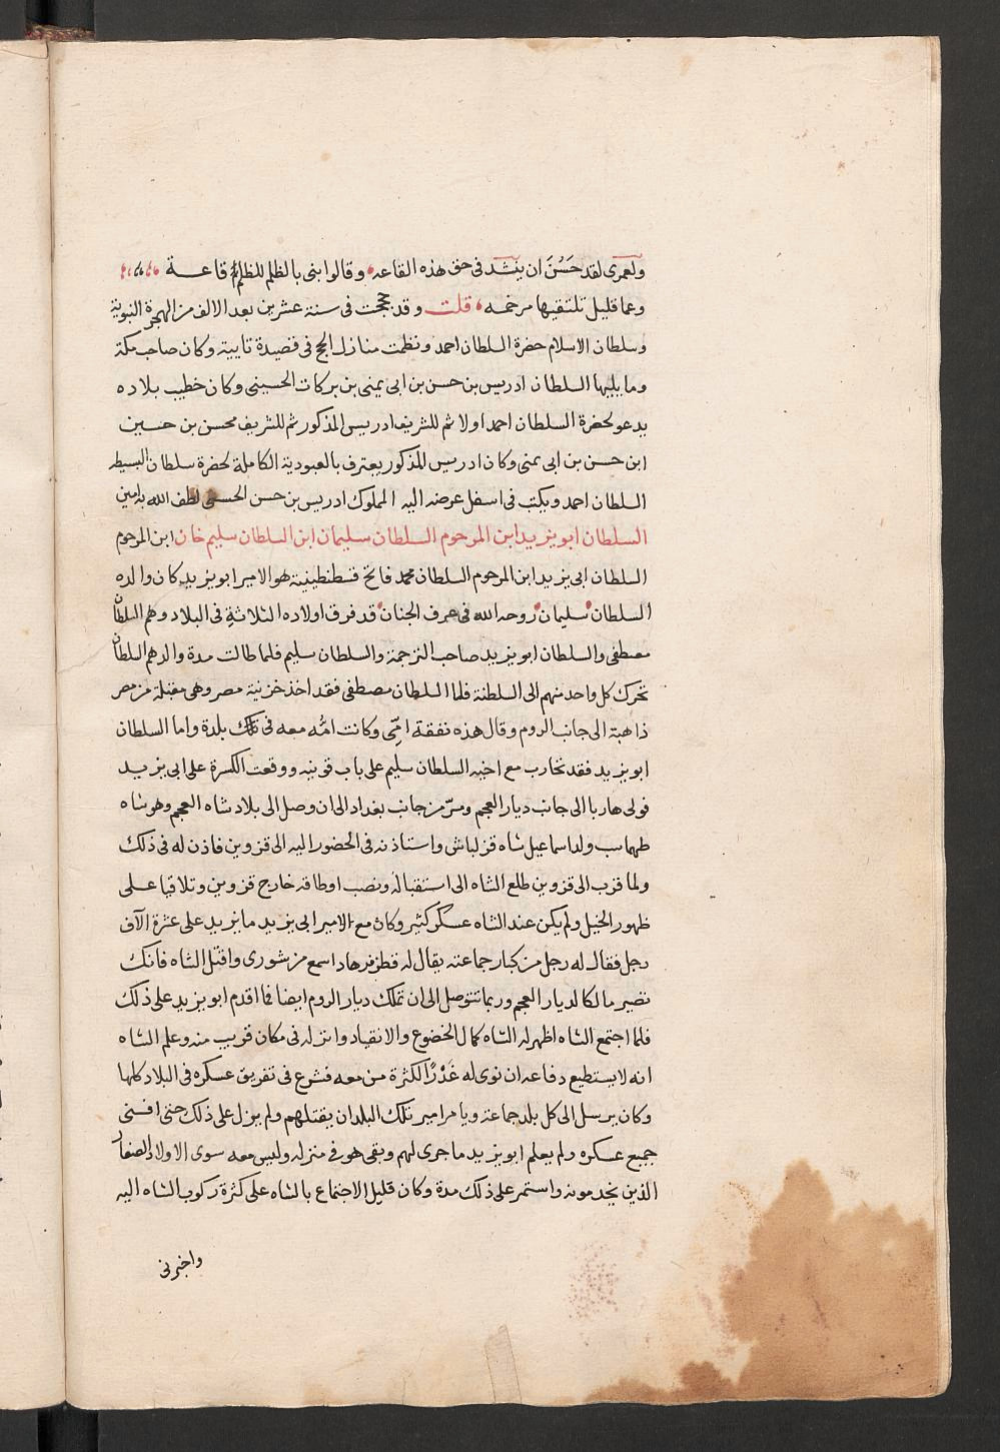 ولعمرى لقد حَسُنَ ان ينشد فى حق هذه القاعه وقالوا بنى بالظلم للظلم قاعـــة
وعما قليل تلتقيها مرخمه قلت وقد حججت فى سنة عشرين بعد الالف من الهجرة النبوية
وسلطان الاسلام حضرة السلطان احمد ونظمت منازل الحج فى قصيدة تاييية وكان صاحب مكة
وما يليها السلطان ادريس بن حسن بن ابى يمنى بن بركات الحسينى وكان خطيب بلاده
يدعو لحضرة السلطان احمد اولا ثم للشريف ادريس المذكور ثم للشريف محسن بن حسين
ابن حسن بن ابى يمنى وكان ادريس المذكور يعترف بالعبودية الكاملة لحضرة سلطان البسيطه
السلطان احمد ويكتب فى اسفل عرضه اليه المملوك ادريس بن حسن الحسنى لطف الله به امين
السلطان ابو يزيد ابن المرحوم السلطان سليمان ابن السلطان سليم خان ابن المرحوم
السلطان ابى يزيد ابن المرحوم السلطان محمد فاتح قسطنطينية هو الامير ابو يزيد كان والده
السلطان سليمان روحه الله فى غرف الجنان قد فرق اولاده الثلاثة فى البلاد وهم السلطان
مصطفى والسلطان ابو يزيد صاحب الترجمة والسلطان سليم فلما طالت مدة والدهم السلطان
تحرك كل واحد منهم الى السلطنة فلما السلطان مصطفى فقد اخذ خزنية مصر وهى مقبلة من مصر
ذاهبة الى جانب الروم وقال هذه نفقة امّى وكانت امُّه معه فى تلك بلدة واما السلطان
ابو يزيد فقد تحارب مع اخيه السلطان سليم على باب قونيه ووقعت الكسرة على ابى يزيد
فولى هاربا الى جانب ديار العجم ومرّ من جانب بغداد الى ان وصل الى بلاد شاه العجم وهو شاه
طهماسب ولد اسماعيل شاه قزلباش واستاذنه فى الحضور اليه الى قزوين فاذن له فى ذلك
ولما قرب الى قزوين طلع الشاه الى استقباله ونصب اوطاقه خارج قزوين وتلاقيا على
ظهور الخيل ولم يكن عند الشاه عسكر كثير وكان مع الامير ابى يزيد ما يزيد على عشرة الآف
رجل فقال له رجل من كبار جماعته يقال له قطز فرهاد اسمع من شورى واقتل الشاه فانك
تصير مالكا لديار العجم وربما تتوصل الى ان تملك ديار الروم ايضا فما اقدم ابو يزيد على ذلك
فلما اجتمع الشاه اظهر له الشاه كمال الخضوع والانقياد وانزله فى مكان قريب منه وعلم الشاه
انه لا يستطيع دفاعه ان نوى له غَدْرًا لكثرة من معه فشرع فى تفريق عسكره فى البلاد كلها
وكان يرسل الى كل بلد جماعة ويامر امير تلك البلدان يقتلهم ولم يزل على ذلك حتى افنى
جميع عسكره ولم يعلم ابو يزيد ما جرى لهم وبقى هو فى منزله وليس معه سوى الاولاد الصغار
الذين يخدمونه واستمر على ذلك مدة وكان قليل الاجتماع بالشاه على كثرة ركوب الشاه اليه
واخبرنى